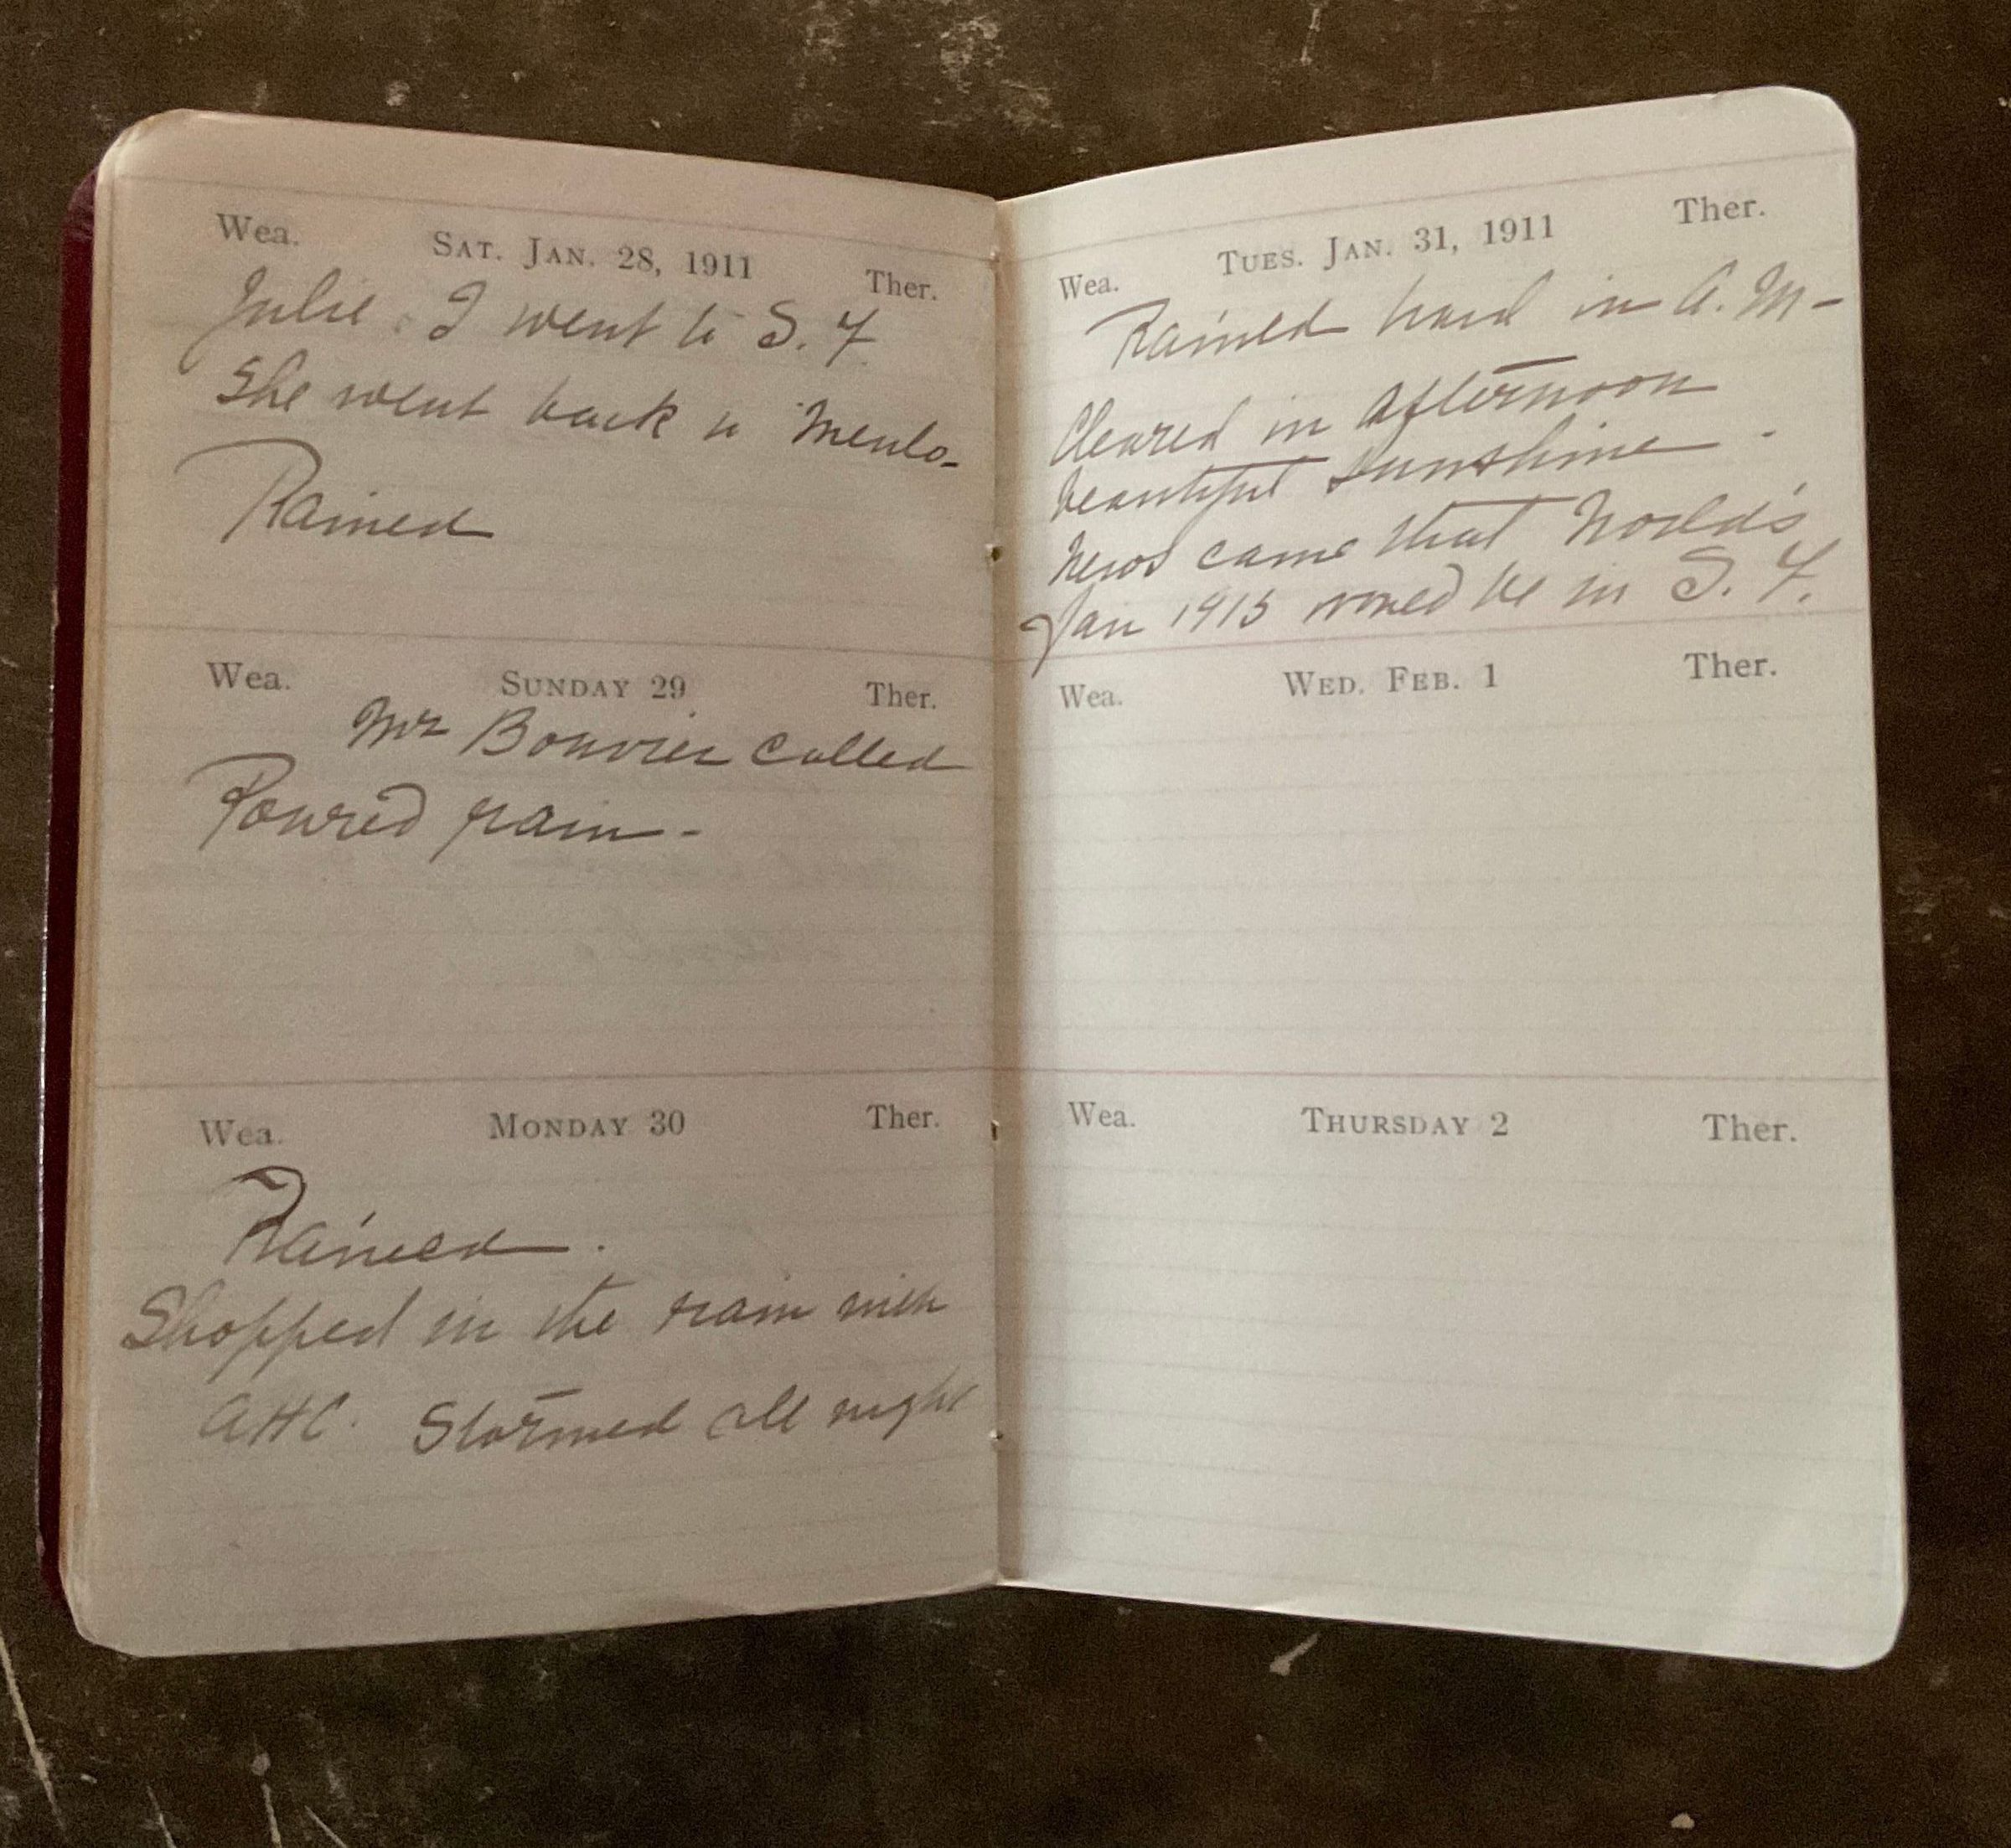 Wea. SAT. JAN. 28, 1911 Ther.
Julie & I went to S. F.
She went back to Menlo-
Rained
Wea. SUNDAY 29 Ther.
Mr Bouvier called
Poured rain -
Wea. MONDAY 30 Ther.
Rained.
Shopped in the rain with
AHC. Stormed all night
Wea. TUES. JAN. 31, 1911 Ther.
Rained hard in A. M -
Cleared in afternoon
beautiful sunshine -
News came that World's
Fair 1915 would be in S. F.
Wea. WED. FEB. 1 Ther.
Wea. THURSDAY 2 Ther.